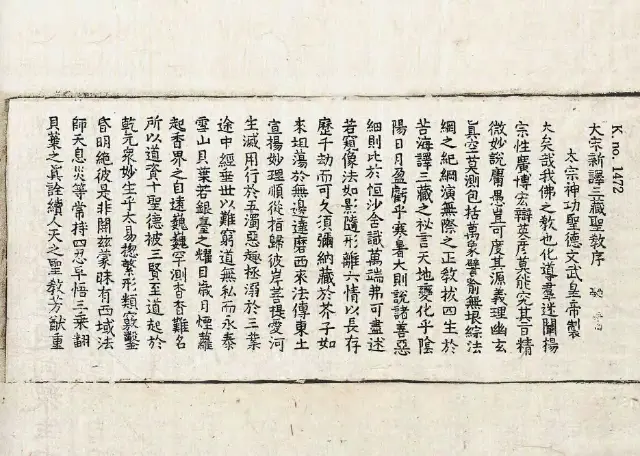 K. no. 1472
大宗新譯三藏聖教序
太宗神功聖德文武皇帝製
大矣哉我佛之教也化導羣迷闡揚
宗性廣博宏辯英彦莫能究其旨精
微妙說庸愚豈可度其源義理幽玄
真空莫測包括萬象譬喻無垠綜法
網之紀綱演無際之正教拔四生於
苦海譯三藏之秘言天地變化乎陰
陽日月盈虧乎寒暑大則說諸善惡
細則比於恒沙含識萬端弗可盡述
若窺像法如影隨形離六情以長存
歷千劫而可久須彌納藏於芥子如
來坦蕩於無邊達磨西來法傳東土
宣揚妙理順從指歸彼岸菩提愛河
生滅用行於五濁惡趣拯溺於三業
途中經垂世以難窮道無私而永泰
雪山貝葉若銀臺之耀目歲月煙蘿
起香界之自遠巍巍罕測杳杳難名
所以道資十聖德被三賢至道起於
乾元衆妙生乎太易惣繁形類竅鑿
昏明絶彼是非開茲蒙昧有西域法
師天息災等常持四忍早悟三乘翻
貝葉之真詮續人天之聖教芳猷重